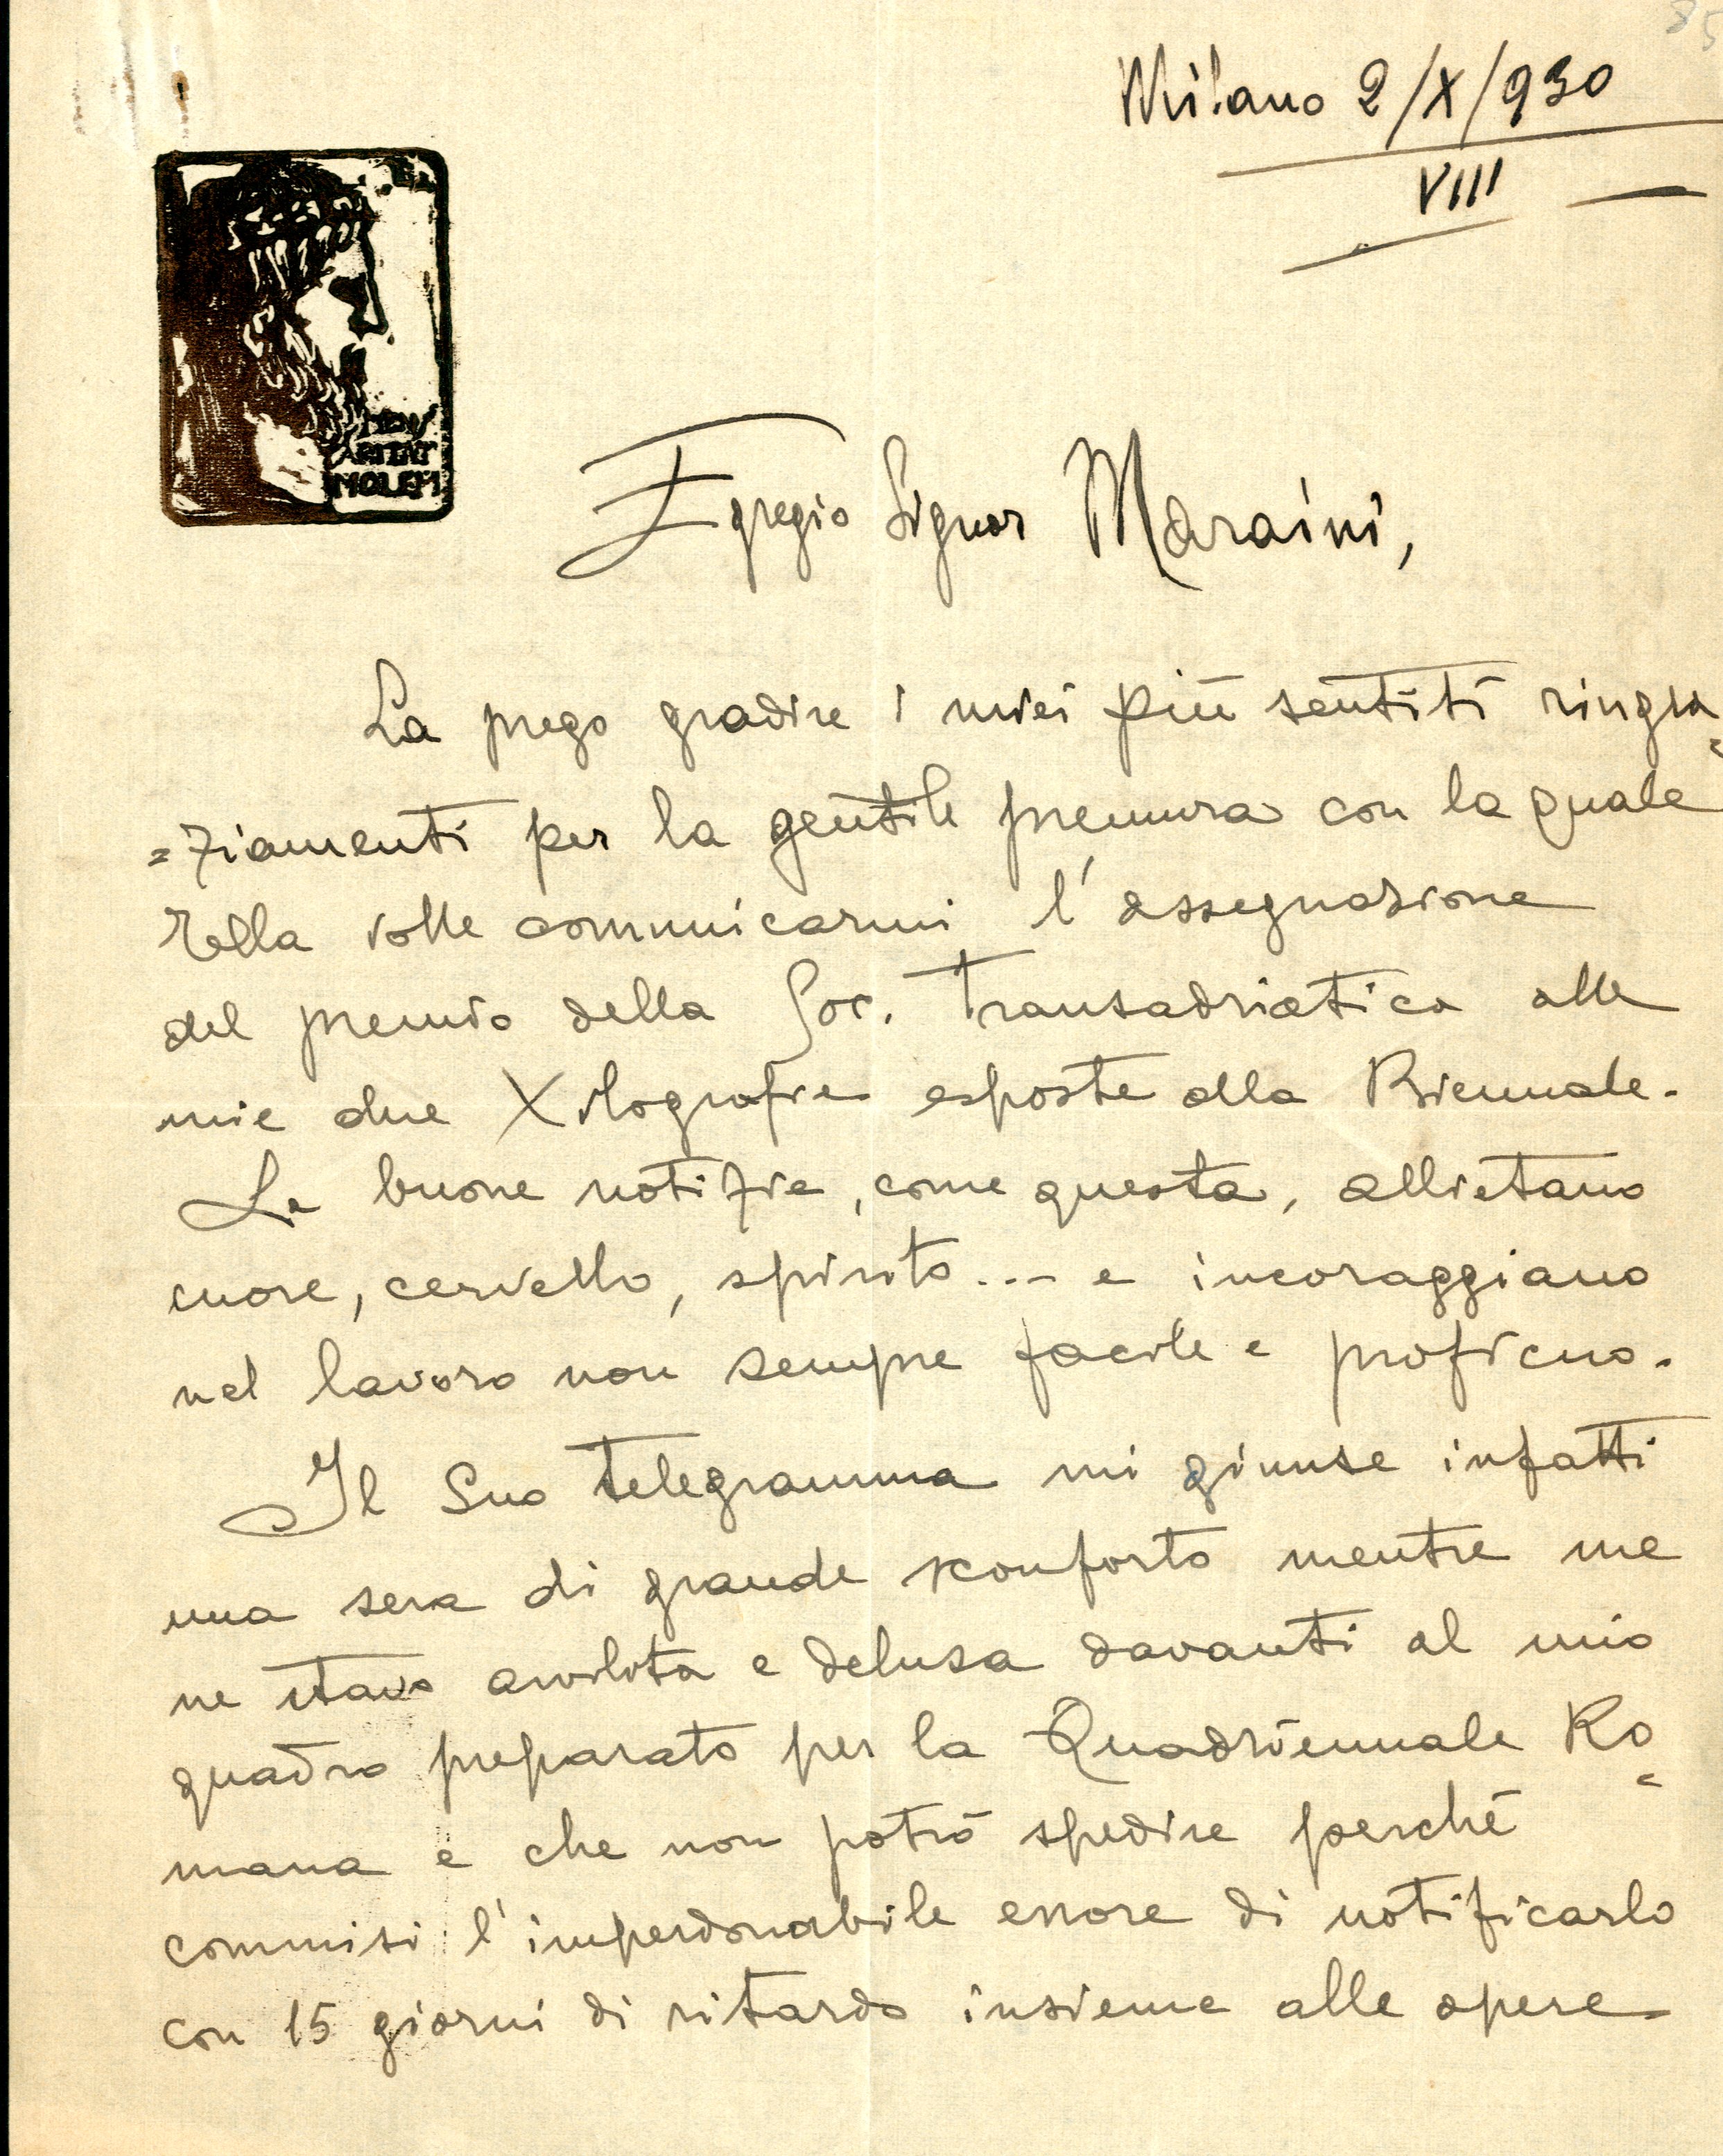 85
Milano 2/X/930
VIII
MENS
AGITAT
MOLEM
Egregio Signor Maraini,
La prego gradire i miei più sentiti ringra=
=ziamenti per la gentile premura con la quale
Ella volle comunicarmi l'assegnazione
del premio della Soc. Transadriatica alle
mie due Xilografie esposte alla Biennale.
Le buone notizie, come questa, allietano
cuore, cervello, spirito... e incoraggiano
nel lavoro non sempre facile e proficuo.
Il Suo telegramma mi giunse infatti
una sera di grande sconforto mentre me
ne stavo avvilita e delusa davanti al mio
quadro preparato per la Quadriennale Ro=
mana e che non potrò spedire perché
commisi l'imperdonabile errore di notificarlo
con 15 giorni di ritardo insieme alle opere